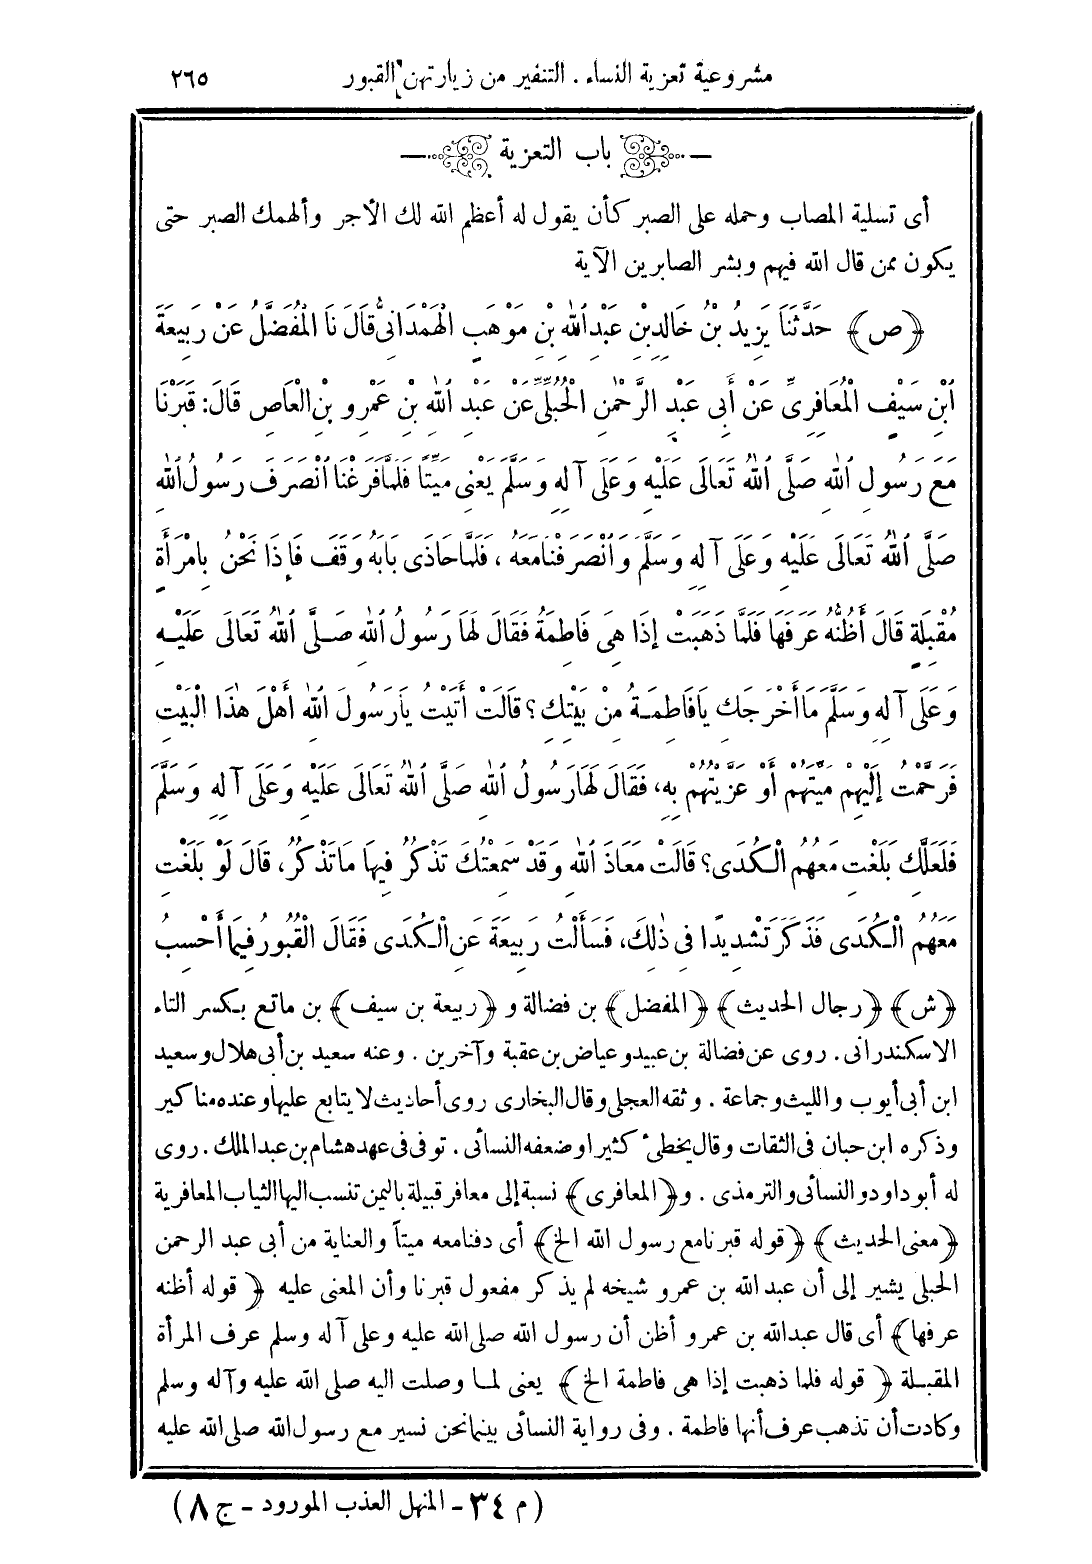 مشروعية تعزية النساء . التنفير من زيارتهن القبور ٢٦٥
باب التعزية
أى تسلية المصاب وحمله على الصبر كأن يقول له أعظم الله لك الأجر وألهمك الصبر حتى
يكون ممن قال الله فيهم وبشر الصابرين الآية
﴿ص﴾ حَدَّثَنَا يَزِيدُ بْنُ خَالِدِ بْنِ عَبْدِ ٱللهِ بْنِ مَوْهَبٍ الْهَمْدَانِىُّ قَالَ نَا الْمُفَضَّلُ عَنْ رَبِيعَةَ
ٱبْنِ سَيْفٍ الْمُعَافِرِىِّ عَنْ أَبِى عَبْدِ الرَّحْمٰنِ الْحُبُلِّىِّ عَنْ عَبْدِ ٱللهِ بْنِ عَمْرِو بْنِ الْعَاصِ قَالَ: قَبَرْنَا
مَعَ رَسُولِ ٱللهِ صَلَّى ٱللهُ تَعَالَى عَلَيْهِ وَعَلَى آلِهِ وَسَلَّمَ يَعْنِى مَيِّتًا فَلَمَّا فَرَغْنَا ٱنْصَرَفَ رَسُولُ ٱللهِ
صَلَّى ٱللهُ تَعَالَى عَلَيْهِ وَعَلَى آلِهِ وَسَلَّمَ وَٱنْصَرَفْنَا مَعَهُ ، فَلَمَّا حَاذَى بَابَهُ وَقَفَ فَإِذَا نَحْنُ بِامْرَأَةٍ
مُقْبِلَةٍ قَالَ أَظُنُّهُ عَرَفَهَا فَلَمَّا ذَهَبَتْ إِذَا هِىَ فَاطِمَةُ فَقَالَ لَهَا رَسُولُ ٱللهِ صَلَّى ٱللهُ تَعَالَى عَلَيْهِ
وَعَلَى آلِهِ وَسَلَّمَ مَا أَخْرَجَكِ يَا فَاطِمَةُ مِنْ بَيْتِكِ؟ قَالَتْ أَتَيْتُ يَا رَسُولَ ٱللهِ أَهْلَ هٰذَا الْبَيْتِ
فَرَحَّمْتُ إِلَيْهِمْ مَيِّتَهُمْ أَوْ عَزَّيْتُهُمْ بِهِ، فَقَالَ لَهَا رَسُولُ ٱللهِ صَلَّى ٱللهُ تَعَالَى عَلَيْهِ وَعَلَى آلِهِ وَسَلَّمَ
فَلَعَلَّكِ بَلَغْتِ مَعَهُمُ الْكُدَى؟ قَالَتْ مَعَاذَ ٱللهِ وَقَدْ سَمِعْتُكَ تَذْكُرُ فِيهَا مَا تَذْكُرُ، قَالَ لَوْ بَلَغْتِ
مَعَهُمُ الْكُدَى فَذَكَرَ تَشْدِيدًا فِى ذٰلِكَ، فَسَأَلْتُ رَبِيعَةَ عَنِ الْكُدَى فَقَالَ الْقُبُورُ فِيمَا أَحْسِبُ
﴿ش﴾ ﴿رجال الحديث﴾ ﴿المفضل﴾ بن فضالة و ﴿ربيعة بن سيف﴾ بن ماتع بكسر التاء
الاسكندرانى. روى عن فضالة بن عبيد وعياض بن عقبة وآخرين . وعنه سعيد بن أبى هلال وسعيد
ابن أبى أيوب والليث وجماعة . وثقه العجلى وقال البخارى روى أحاديث لا يتابع عليها وعنده مناكير
وذكره ابن حبان فى الثقات وقال يخطئ كثيرا وضعفه النسائى . توفى فى عهد هشام بن عبد الملك . روى
له أبوداود والنسائى والترمذى . و﴿المعافرى﴾ نسبة إلى معافر قبيلة باليمن تنسب اليها الثياب المعافرية
﴿معنى الحديث﴾ ﴿قوله قبرنا مع رسول الله الخ﴾ أى دفنا معه ميتاً والعناية من أبى عبد الرحمن
الحبلى يشير إلى أن عبد الله بن عمرو شيخه لم يذكر مفعول قبرنا وأن المعنى عليه ﴿قوله أظنه
عرفها﴾ أى قال عبدالله بن عمرو أظن أن رسول الله صلى الله عليه وعلى آله وسلم عرف المرأة
المقبلة ﴿قوله فلما ذهبت إذا هى فاطمة الخ﴾ يعنى لما وصلت اليه صلى الله عليه وآله وسلم
وكادت أن تذهب عرف أنها فاطمة . وفى رواية النسائى بينما نحن نسير مع رسول الله صلى الله عليه
(م ٣٤ - المنهل العذب المورود - ج ٨)